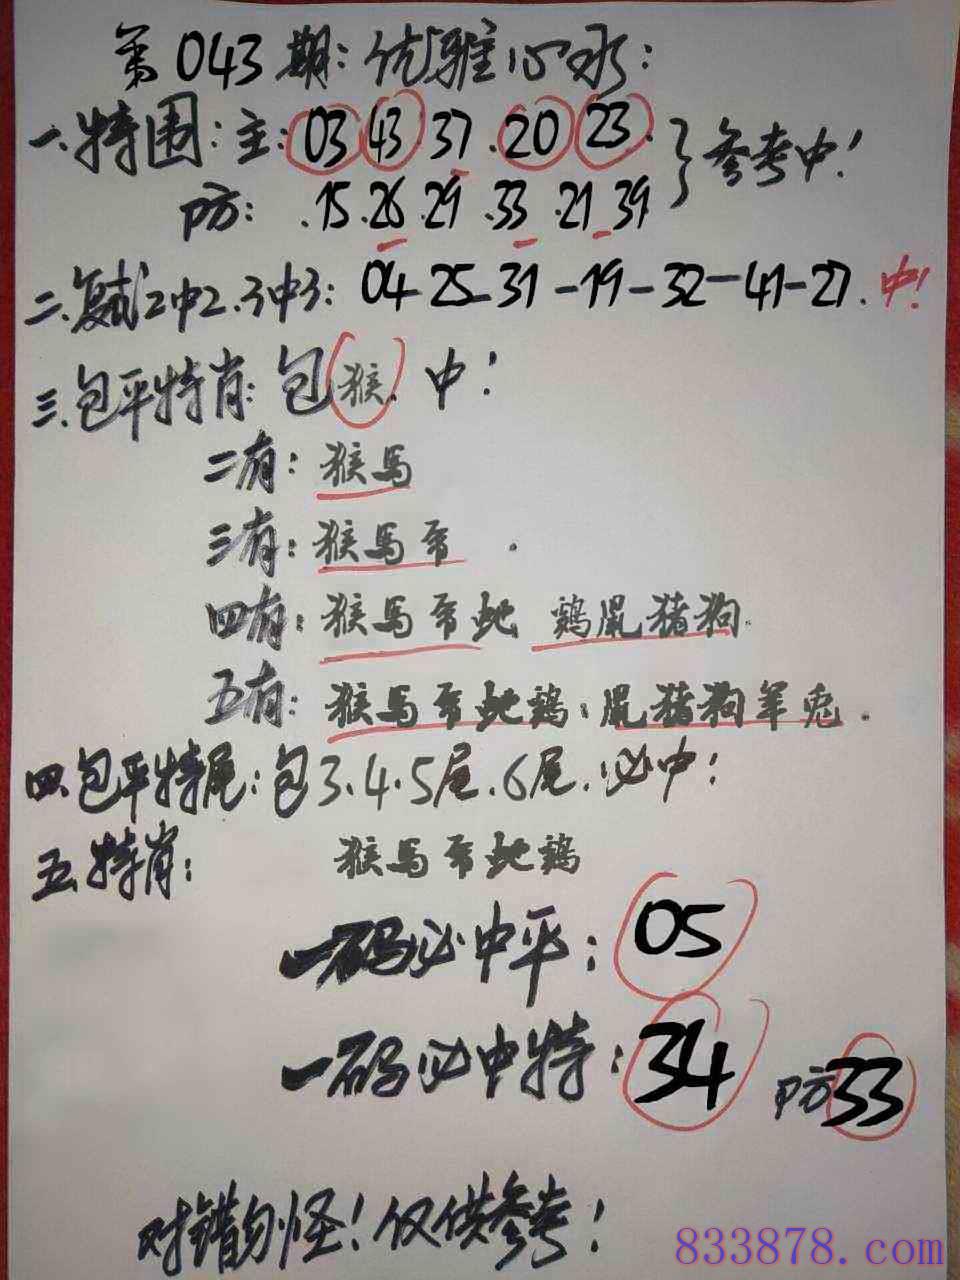 第043期:优雅心水:
一.特围:主:03 43 37.20 23.}参考中!
防: .15.26.29.33.21.39
二.复试2中2.3中3: 04-25-31-19-32-41-27.中!
三.包平特肖:包猴.中!
二有:猴馬
三有:猴馬帝.
四有:猴馬帝蛇 鷄鼠猪狗.
五有:猴馬帝蛇鷄:鼠猪狗羊兎.
四.包平特尾:包3.4.5尾.6尾.必中!
五.特肖: 猴馬帝蛇鷄
一码必中平:05
一码必中特:34 防33
对错勿怪!仅供参考!
833878.com